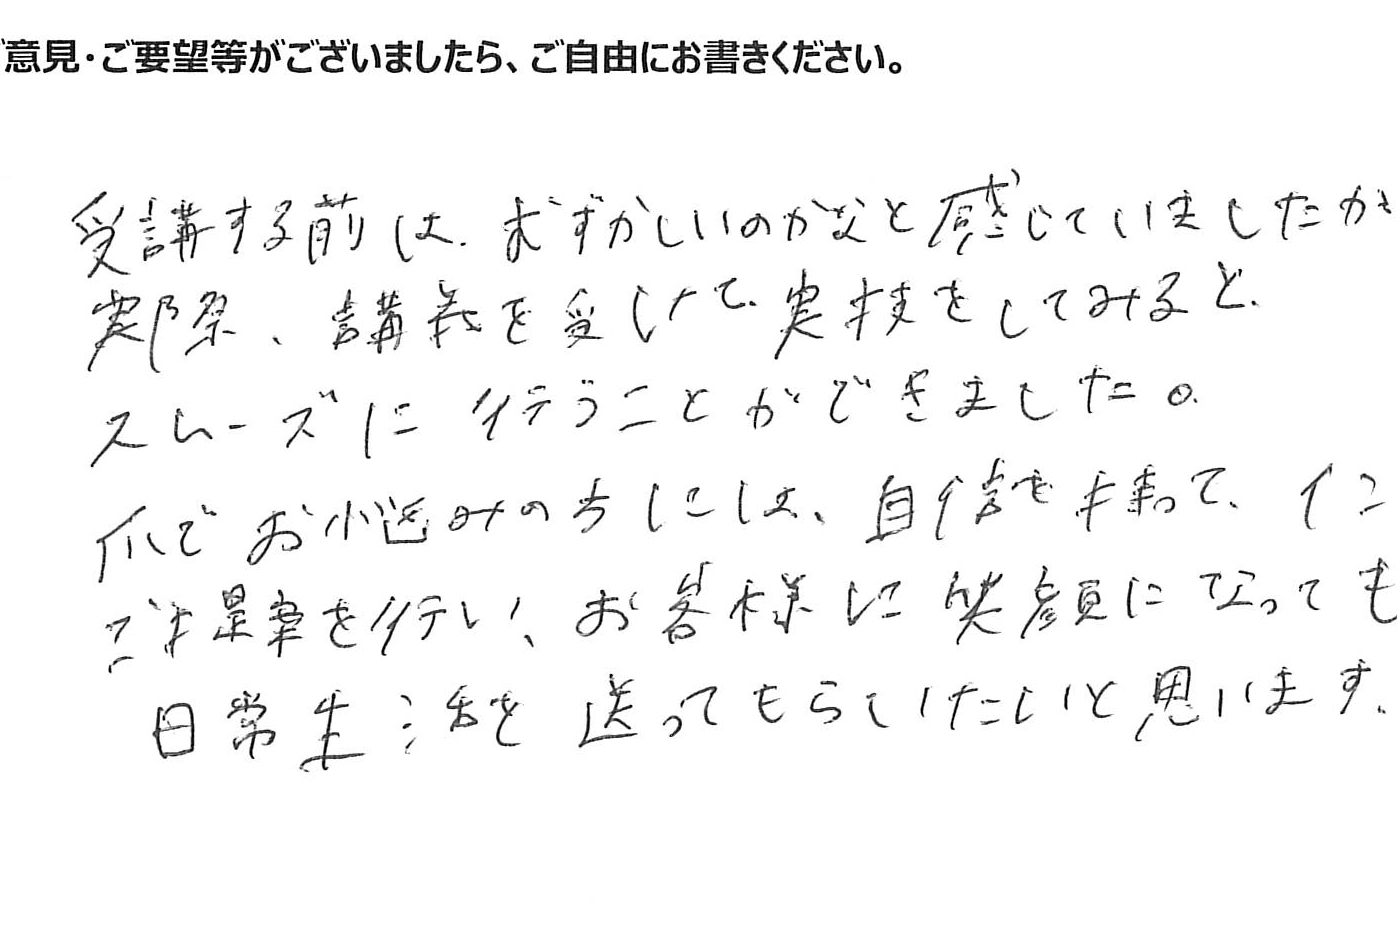 意見・ご要望等がございましたら、ご自由にお書きください。
受講する前は、むずかしいのかなと感じていましたが
実際、講義を受けて、実技をしてみると、
スムーズに行うことができました。
爪でお悩みの方には、自信を持って、
ご提案を行い、お客様に笑顔になっても
日常生活を送ってもらいたいと思います。